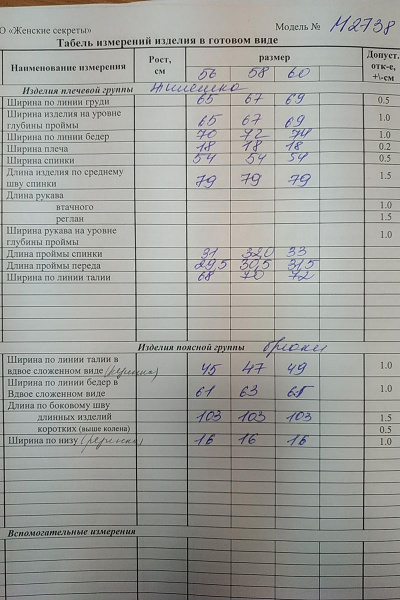 О «Женские секреты» Модель № М2738
Табель измерений изделия в готовом виде
Наименование измерения Рост, см размер Допуст. отк-е, +\-см
56 58 60
Изделия плечевой группы
Ширина по линии груди 65 67 69 0.5
Ширина изделия на уровне
глубины проймы 65 67 69 1.0
Ширина по линии бедер 70 72 74 1.0
Ширина плеча 18 18 18 0.2
Ширина спинки 54 54 54 0.5
Длина изделия по среднему
шву спинки 79 79 79 1.5
Длина рукава
втачного 1.0
реглан 1.5
Ширина рукава на уровне
глубины проймы 1.0
Длина проймы спинки 31 32,0 33
Длина проймы переда 29,5 30,5 31,5
Ширина по линии талии 68 70 72
Изделия поясной группы брюки
Ширина по линии талии в
вдвое сложенном виде (резинка) 45 47 49 1.0
Ширина по линии бедер в
Вдвое сложенном виде 61 63 65 1.0
Длина по боковому шву
длинных изделий 103 103 103 1.5
коротких (выше колена) 0.5
Ширина по низу (резинка) 16 16 16 1.0
Вспомогательные измерения